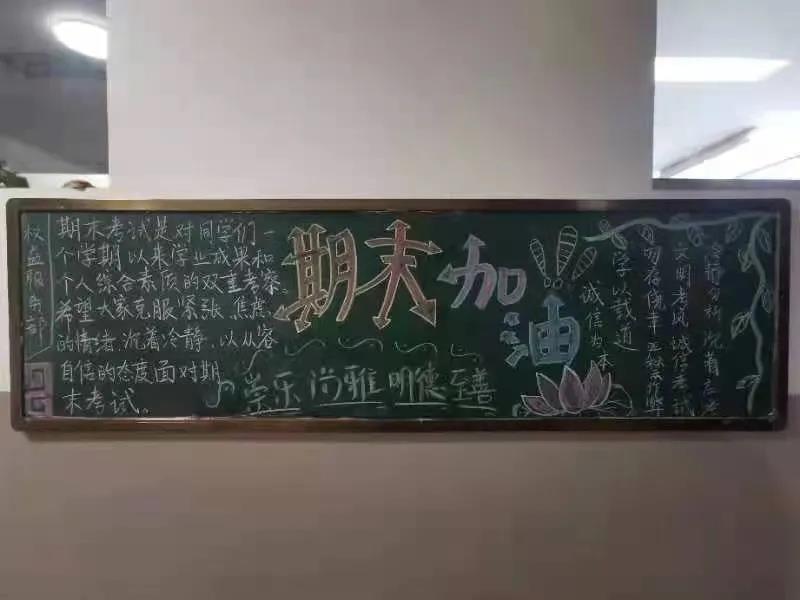 权益服务部
期末考试是对同学们一
个学期以来学业成果和
个人综合素质的双重考察。
希望大家克服紧张、焦虑
的情绪，沉着冷静，以从容
自信的态度面对期
末考试。
期末加油!!!
崇乐 尚雅 明德 至善
冷静分析 沉着应答
文明考风 诚信考试
学以载道
诚信为本